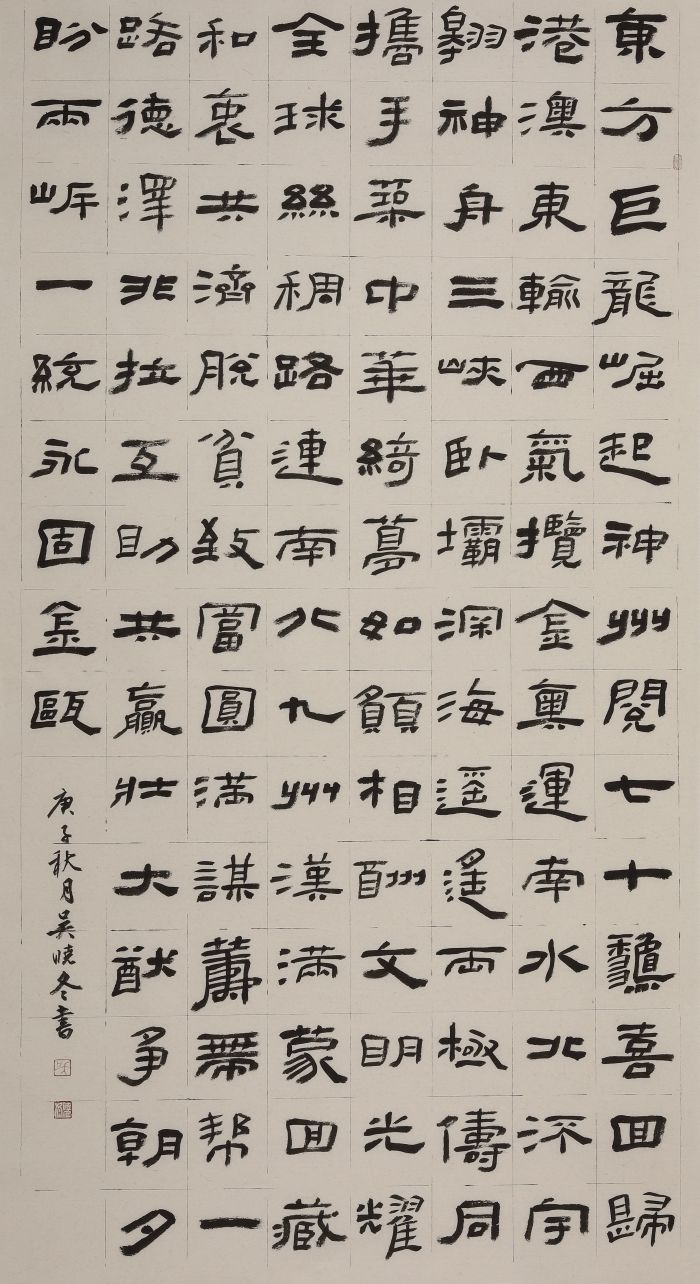 東方巨龍崛起神州閱七十龝喜回歸
港澳東輸西氣攬金奧運南水北流宇
翱神舟三峽臥壩深海遥遥兩極儔同
攜手築中華綺夢如願相酬文明光耀
全球絲稠路連南北九州漢滿蒙回藏
和衷共濟脫貧致富圓滿謀籌帶帮一
路德澤非拉互助共贏壯大猷爭朝夕
盼兩岸一統永固金甌
庚子秋月吳曉冬書